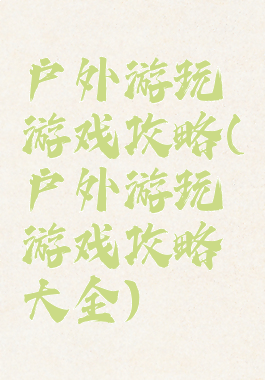 户外游玩
游戏攻略(
户外游玩
游戏攻略
大全)